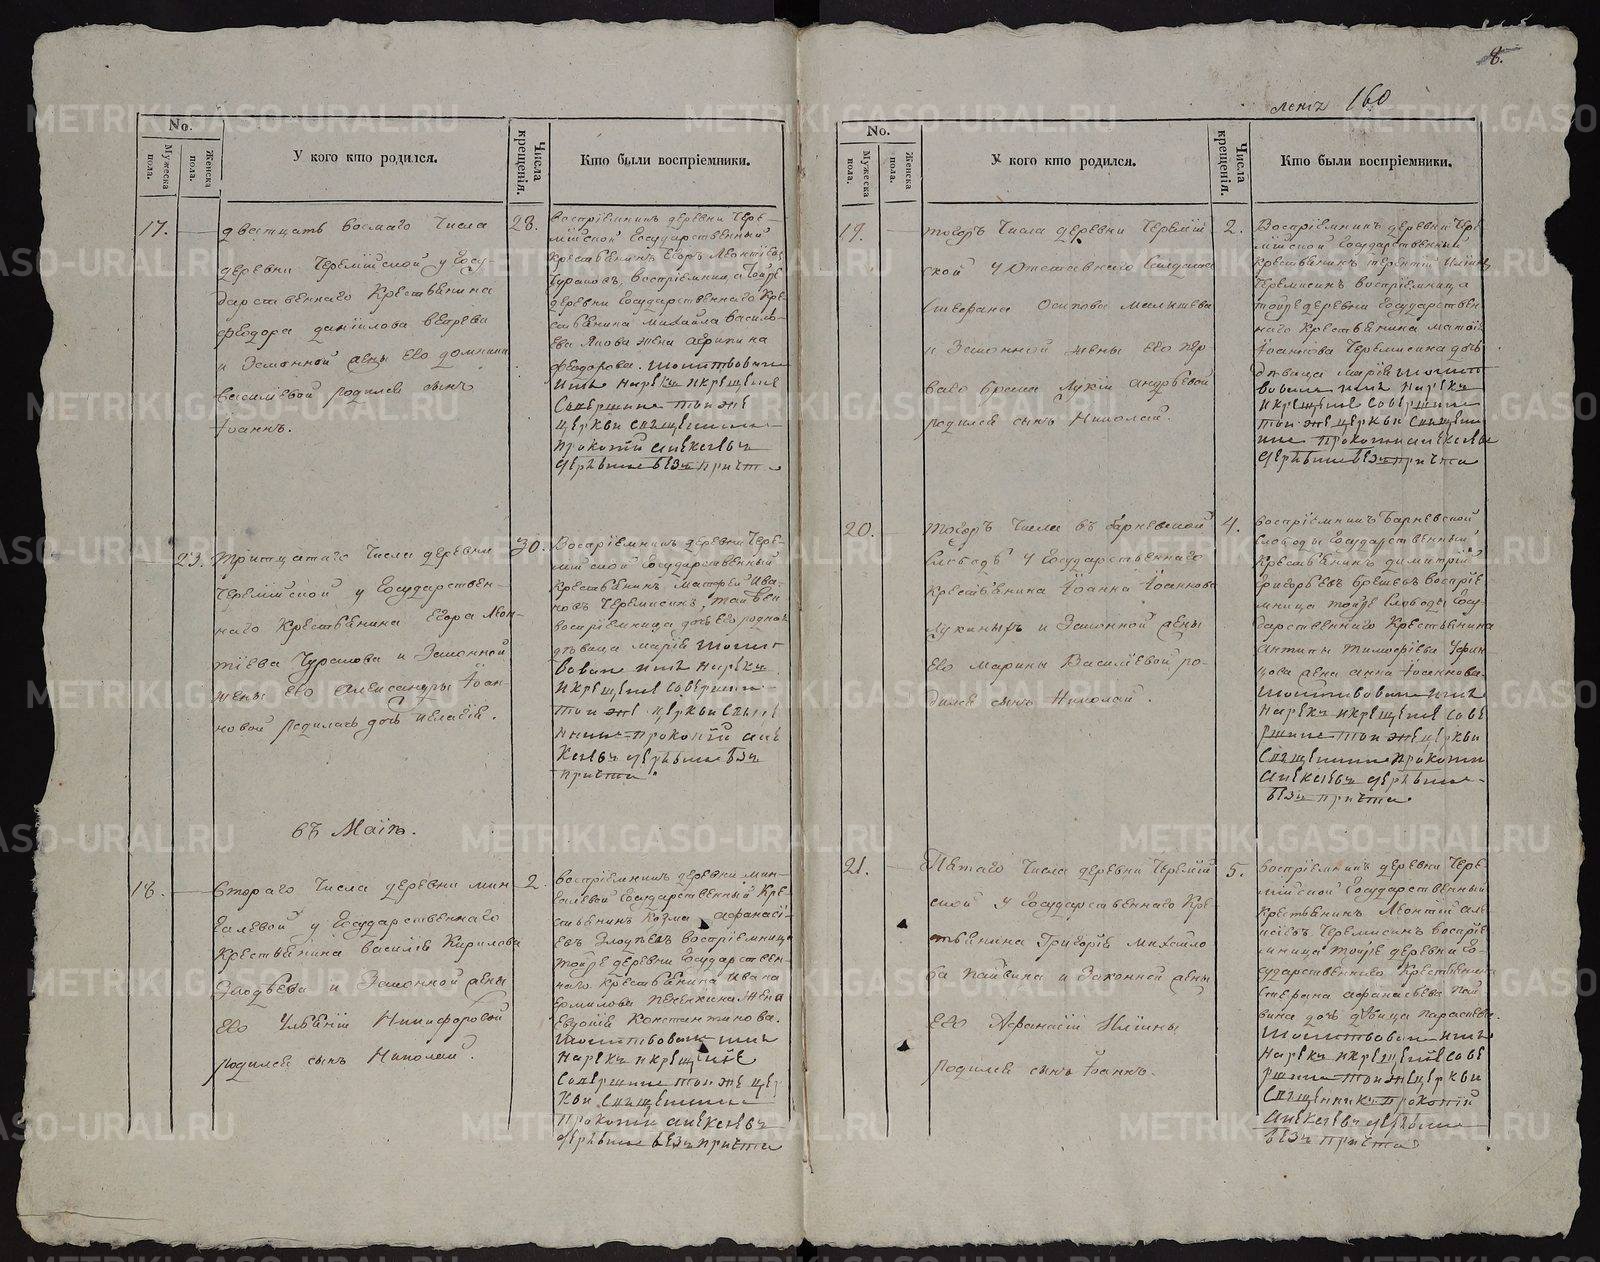 8.
листъ 160
No.
Мужеска пола.
Женска пола.
У кого кто родился.
Числа крещенія.
Кто были воспріемники.
17.
двестцать восмаго Числа
деревни Черемійской у Госу-
дарственнаго Крестьянина
Феодора Даніилова Ветрева
и Законной жены Его Домники
Василіевой родился сынъ
Іоаннъ.
28.
Воспріемникъ деревни Чере-
мійской Государственный
Крестьянинъ Егоръ Леонтіевъ
Чураковъ, Воспріемница тойже
деревни Государственнаго Кре-
стьянина Михайла Василь-
ева жена Агрипина
Феодорова. Молитвовалъ
имя нарекъ и крещеніе
Совершилъ тои же
церкви Священникъ
Прокопій Алексеевъ
безъ причта
23.
Тритцатаго Числа деревни
Черемійской у Государствен-
наго Крестьянина Егора Леон-
тіева Чуракова и Законной
жены Его Александры Іоан-
новой родилась дочь Пелагія.
30.
Воспріемникъ деревни Чере-
мійской Государственный
Крестьянинъ Матфей Ива-
новъ Черемисинъ,
воспріемница дочь его родная
девица Марія Молит-
вовалъ имя нарекъ
и крещеніе совершилъ
тои же церкви Свящ
енникъ Прокопій Але
ксеевъ безъ
причта.
въ Маіѣ.
18.
Втораго Числа деревни Мин-
галевой у Государственнаго
Крестьянина Василія Кирилова
Злодѣева и Законной жены
Его Улѣяніи Никифоровой
родился сынъ Николай.
2.
Воспріемникъ деревни Мин-
галевой Государственный Кре-
стьянинъ Козма Афанасі-
евъ Злодѣевъ воспріемница
тойже деревни Государствен-
наго Крестьянина Ивана
Ермилова Пененкина Жена
Евдокія Константинова.
Молитвовалъ имя
Нарекъ и крещеніе
Совершилъ тои же цер
кви Священникъ
Прокопій Алексеевъ
безъ причта
No.
Мужеска пола.
Женска пола.
У кого кто родился.
Числа крещенія.
Кто были воспріемники.
19.
тогожъ Числа деревни Черемій
ской у Отставнаго Салдата
Стефана Осипова Малышева
и Законной жены его пер
ваго брака Лукіи Андрѣевой
родился сынъ Николай.
2.
Воспріемникъ деревни Чере
мійской Государственный
Крестьянинъ Терентій Илиінъ
Черемисинъ воспріемница
тойже деревни Государствен
наго Крестьянина Матвія
Іоаннова Черемисина дочь
дѣвица Марія Молит
вовалъ имя нарекъ
и крещеніе совершилъ
тои же церкви Священ
никъ Прокопій Алексеевъ
безъ причта
20.
Тогожъ Числа въ Барневской
Слободѣ у Государственнаго
Крестьянина Іоанна Іоаннова
Лукиныхъ и Законной жены
Его Марины Василіевой ро-
дился сынъ Николай.
4.
Воспріемникъ Барневской
слободы Государственный
Крестьянинъ Димитрій
Григорьевъ воспріе
мница тойже Слободы Госу-
дарственнаго Крестьянина
Антипы Тимофіева Уфин
цова жена Анна Іоаннова.
Молитвовалъ имя
Нарекъ и крещеніе сове
ршилъ тои же церкви
Священникъ Прокопій
Алексеевъ
безъ причта.
21.
Пятаго Числа деревни Черемій
ской у Государственнаго Кре
стьянина Григорія Михайло
ва Пайвина и Законной жены
Его Афанасіи Илиіны
родился сынъ Іоаннъ.
5.
Воспріемникъ деревни Чере
мійской Государственный
Крестьянинъ Леонтій Але
ксіевъ Черемисинъ воспріе
мница тойже деревни Го-
сударственнаго Крестьянина
Стефана Афанасьева Пай
вина дочь дѣвица Параскева.
Молитвовалъ имя
Нарекъ и крещеніе сове
ршилъ тои же церкви
Священникъ Прокопій
Алексеевъ
безъ причта
METRIKI.GASO-URAL.RU